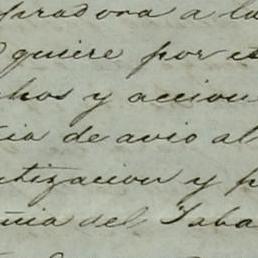 pradora a la
quiere por es
hos y accion
cia de avio al
tizacion y p
ñia del Taba